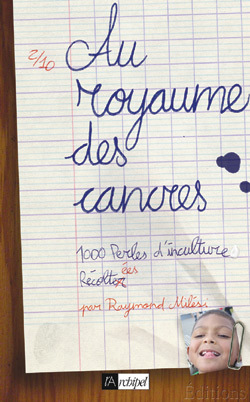 2/10
Au
royaume
des
cancres
1000 Perles d'inculture
Récolter ées
par Raymond Milési
l'Archipel
Éditions